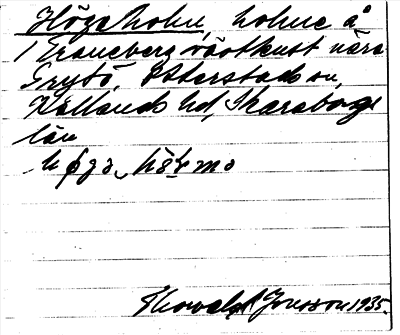 Höga holme, holme å
Traneberg västkust nära
Grytö, Otterstads sn,
Kållands hd, Skaraborgs
län
Thorvald Jonsson 1935.